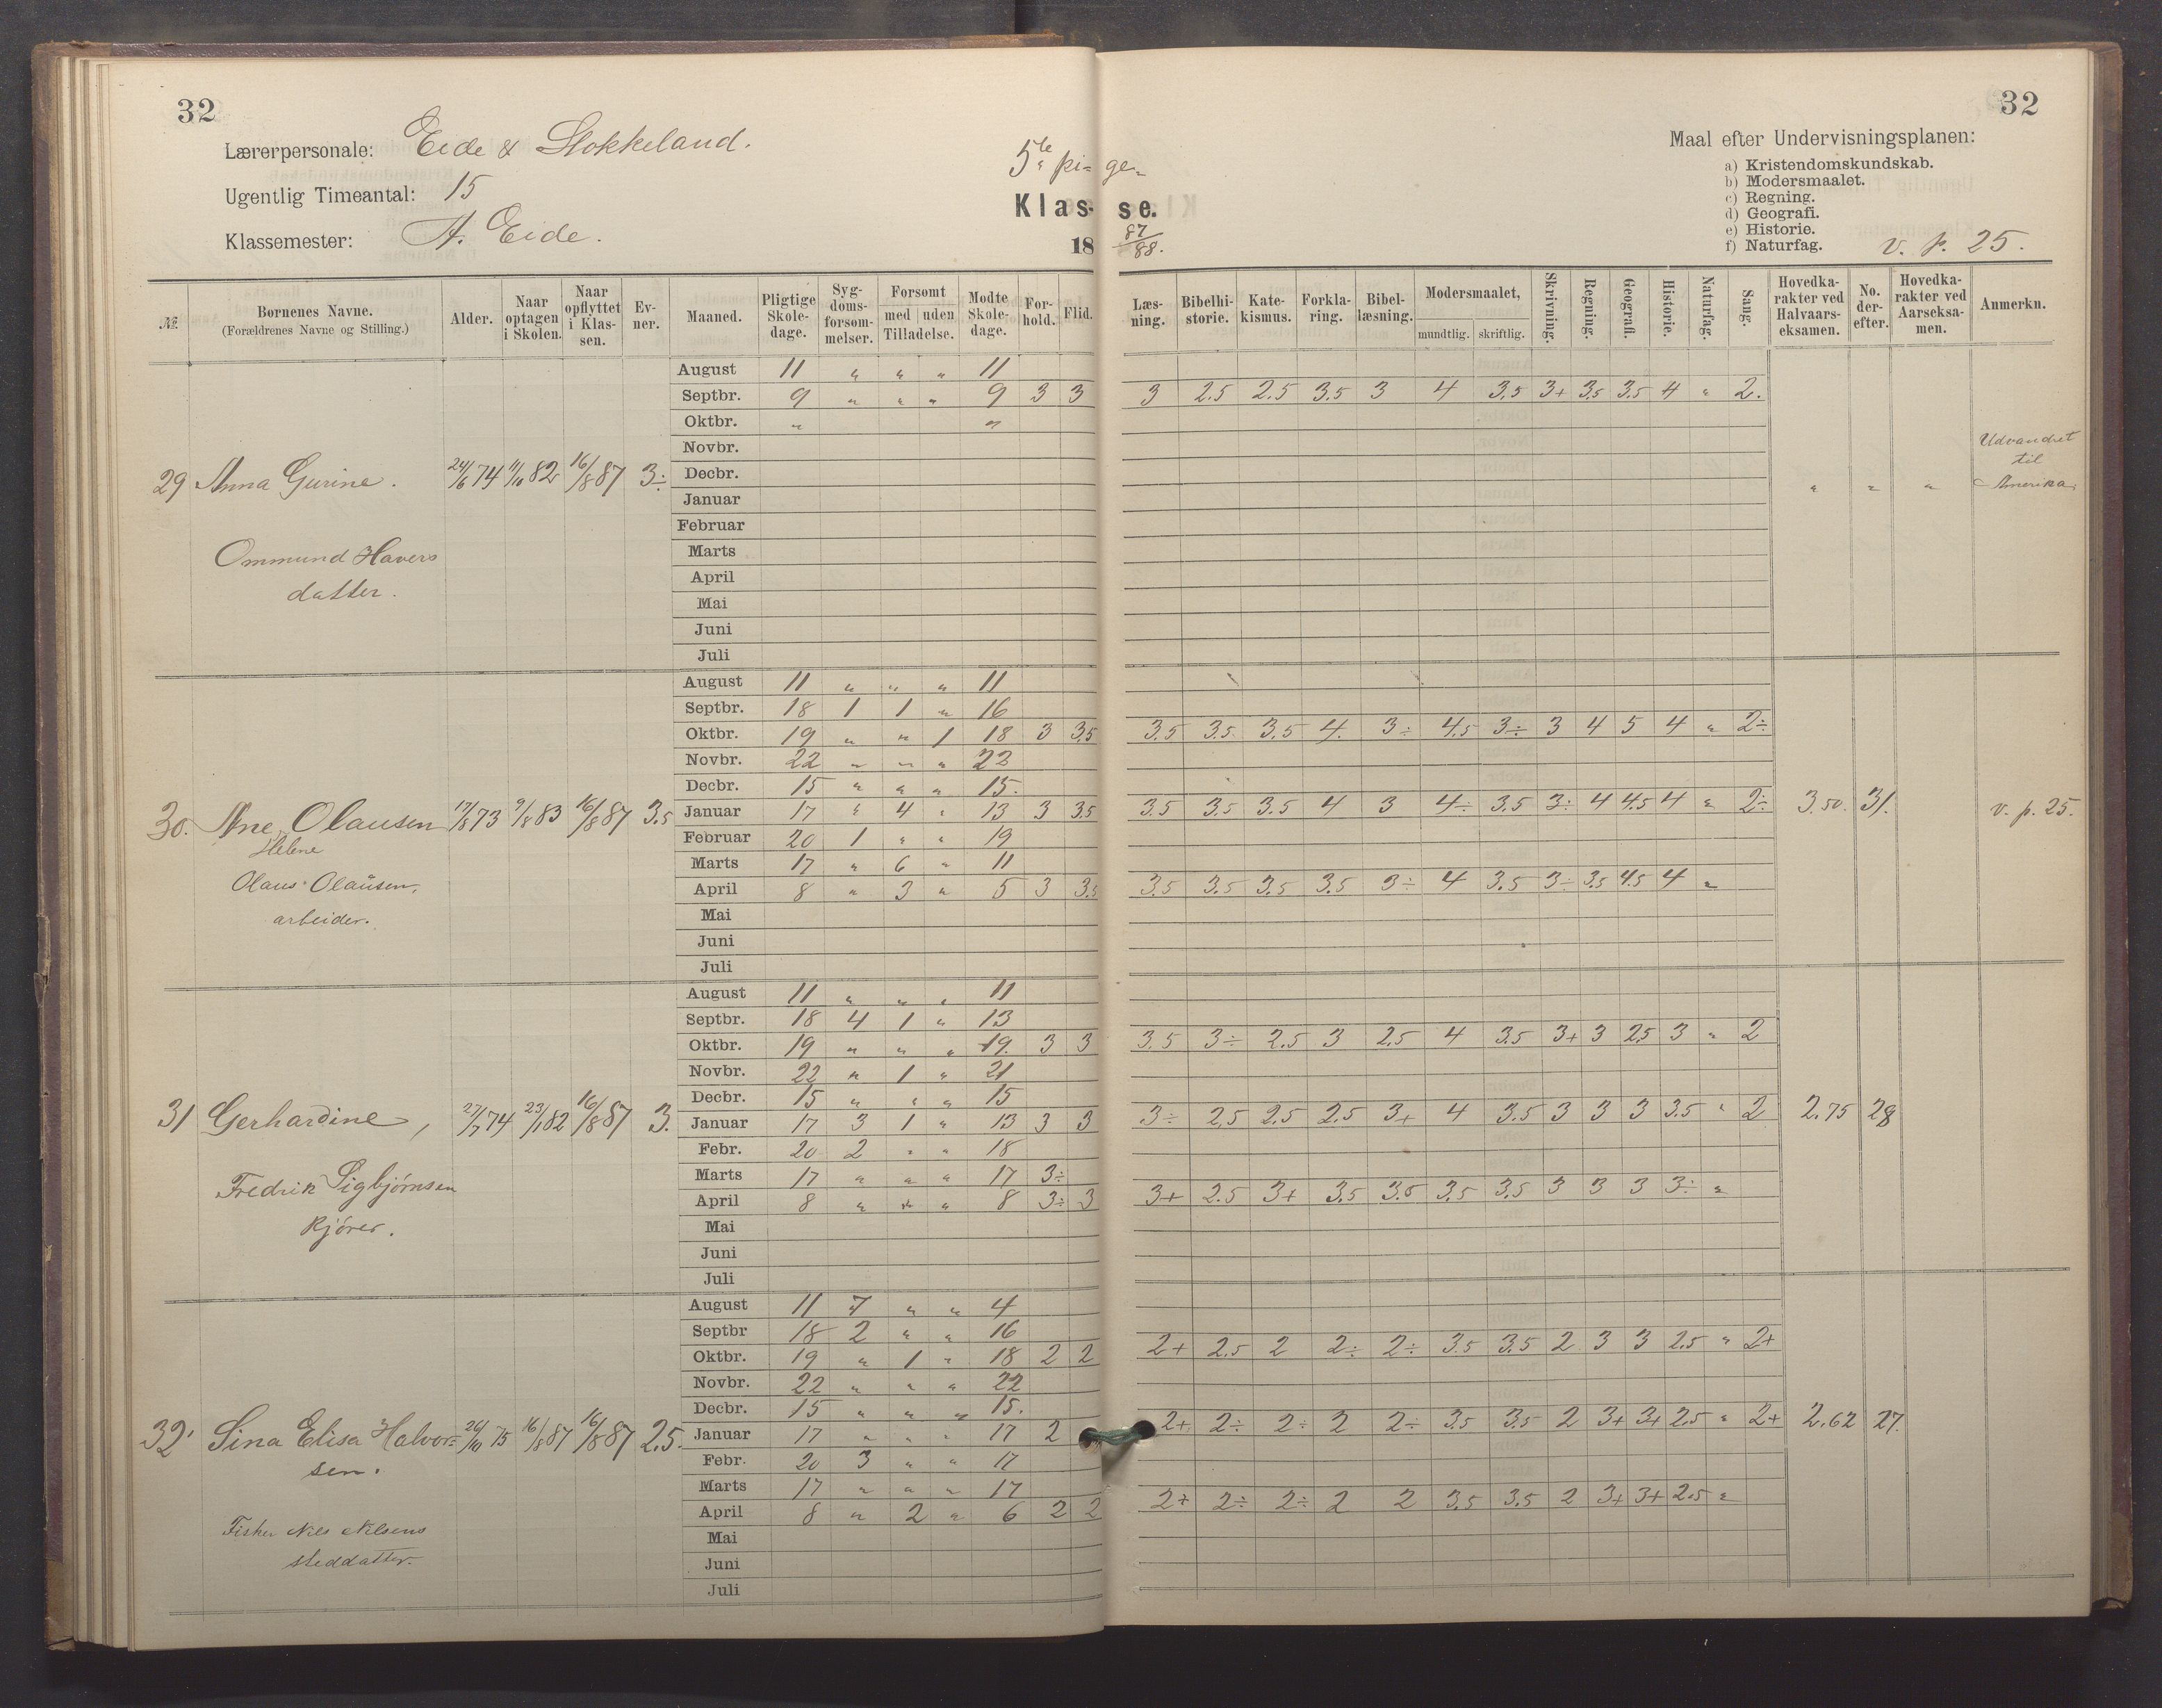 32
32
Lærerpersonale: Eide & Stokkeland.
Ugentlig Timeantal: 15
Klassemester: A. Eide.
5te pi- ge-
Klas- se.
18 87/88.
Maal efter Undervisningsplanen:
a) Kristendomskundskab.
b) Modersmaalet.
c) Regning.
d) Geografi.
e) Historie.
f) Naturfag. v. p. 25.
№ | Børnenes Navne. (Forældrenes Navne og Stilling.) | Alder. | Naar optagen i Skolen. | Naar opflyttet i Klassen. | Evner. | Maaned. | Pligtige Skoledage. | Sygdomsforsømmelser. | Forsømt med uden Tilladelse. | Mødte Skoledage. | Forhold. | Flid. | Læsning. | Bibelhistorie. | Katekismus. | Forklaring. | Bibellæsning. | Modersmaalet, mundtlig. skriftlig. | Skrivning. | Regning. | Geografi. | Historie. | Naturfag. | Sang. | Hovedkarakter ved Halvaarseksamen. | No. derefter. | Hovedkarakter ved Aarseksamen. | Anmerkn.
29 Anna Gurine. 24/6 74 11/10 82 16/8 87 3÷
Ommund Havers
datter.
August 11 " " " 11
Septbr. 9 " " " 9 3 3 3 2.5 2.5 3.5 3 4 3.5 3+ 3.5 3.5 4 " 2.
Oktbr. " "
Novbr.
Decbr.
Januar
Februar
Marts
April
Mai
Juni
Juli
" " " Udvandret
til
Amerika.
30. Ane Olausen 17/8 73 9/8 83 16/8 87 3.5
Helene
Olaus Olausen,
arbeider.
August 11 " " " 11
Septbr. 18 1 1 " 16
Oktbr. 19 " " 1 18 3 3.5 3.5 3.5 3.5 4. 3÷ 4.5 3÷ 3 4 5 4 " 2÷
Novbr. 22 " " " 22
Decbr. 15 " " " 15.
Januar 17 " 4 " 13 3 3.5 3.5 3.5 3.5 4 3 4÷ 3.5 3÷ 4 4.5 4 " 2÷ 3.50. 31. v. p. 25.
Februar 20 1 " " 19
Marts 17 " 6 " 11
April 8 " 3 " 5 3 3.5 3.5 3.5 3.5 3.5 3÷ 4 3.5 3÷ 3.5 4.5 4 "
Mai
Juni
Juli
31 Gerhardine, 27/7 74 23/1 82 16/8 87 3.
Fredrik Sigbjørnsen
Kjører.
August 11 " " " 11
Septbr. 18 4 1 " 13
Oktbr. 19 " " " 19. 3 3 3.5 3÷ 2.5 3 2.5 4 3.5 3+ 3 2.5 3 " 2
Novbr. 22 " 1 " 21
Decbr. 15 " " " 15
Januar 17 3 1 " 13 3 3 3÷ 2.5 2.5 2.5 3+ 4 3.5 3 3 3 3.5 " 2 2.75 28
Febr. 20 2 " " 18
Marts 17 " " " 17 3÷
April 8 " " " 8 3÷ 3 3+ 2.5 3+ 3.5 3.5 3.5 3.5 3 3 3 3÷ "
Mai
Juni
Juli
32. Sina Elisa Halvor- 26/10 75 16/8 87 16/8 87 2.5.
sen.
Fisker Nils Nilsens
steddatter.
August 11 7 " " 4
Septbr 18 2 " " 16
Oktbr. 19 " 1 " 18 2 2 2+ 2.5 2 2÷ 2÷ 3.5 3.5 2 3 3 2.5 " 2+
Novbr. 22 " " " 22
Decbr. 15 " " " 15.
Januar 17 " " " 17 2 2+ 2÷ 2÷ 2 2÷ 3.5 3.5 2 3+ 3+ 2.5 " 2+ 2.62 27.
Febr. 20 3 " " 17
Marts 17 " " " 17
April 8 " 2 " 6 2 2 2+ 2÷ 2÷ 2 2 3.5 3.5 2 3+ 3+ 2.5 "
Mai
Juni
Juli